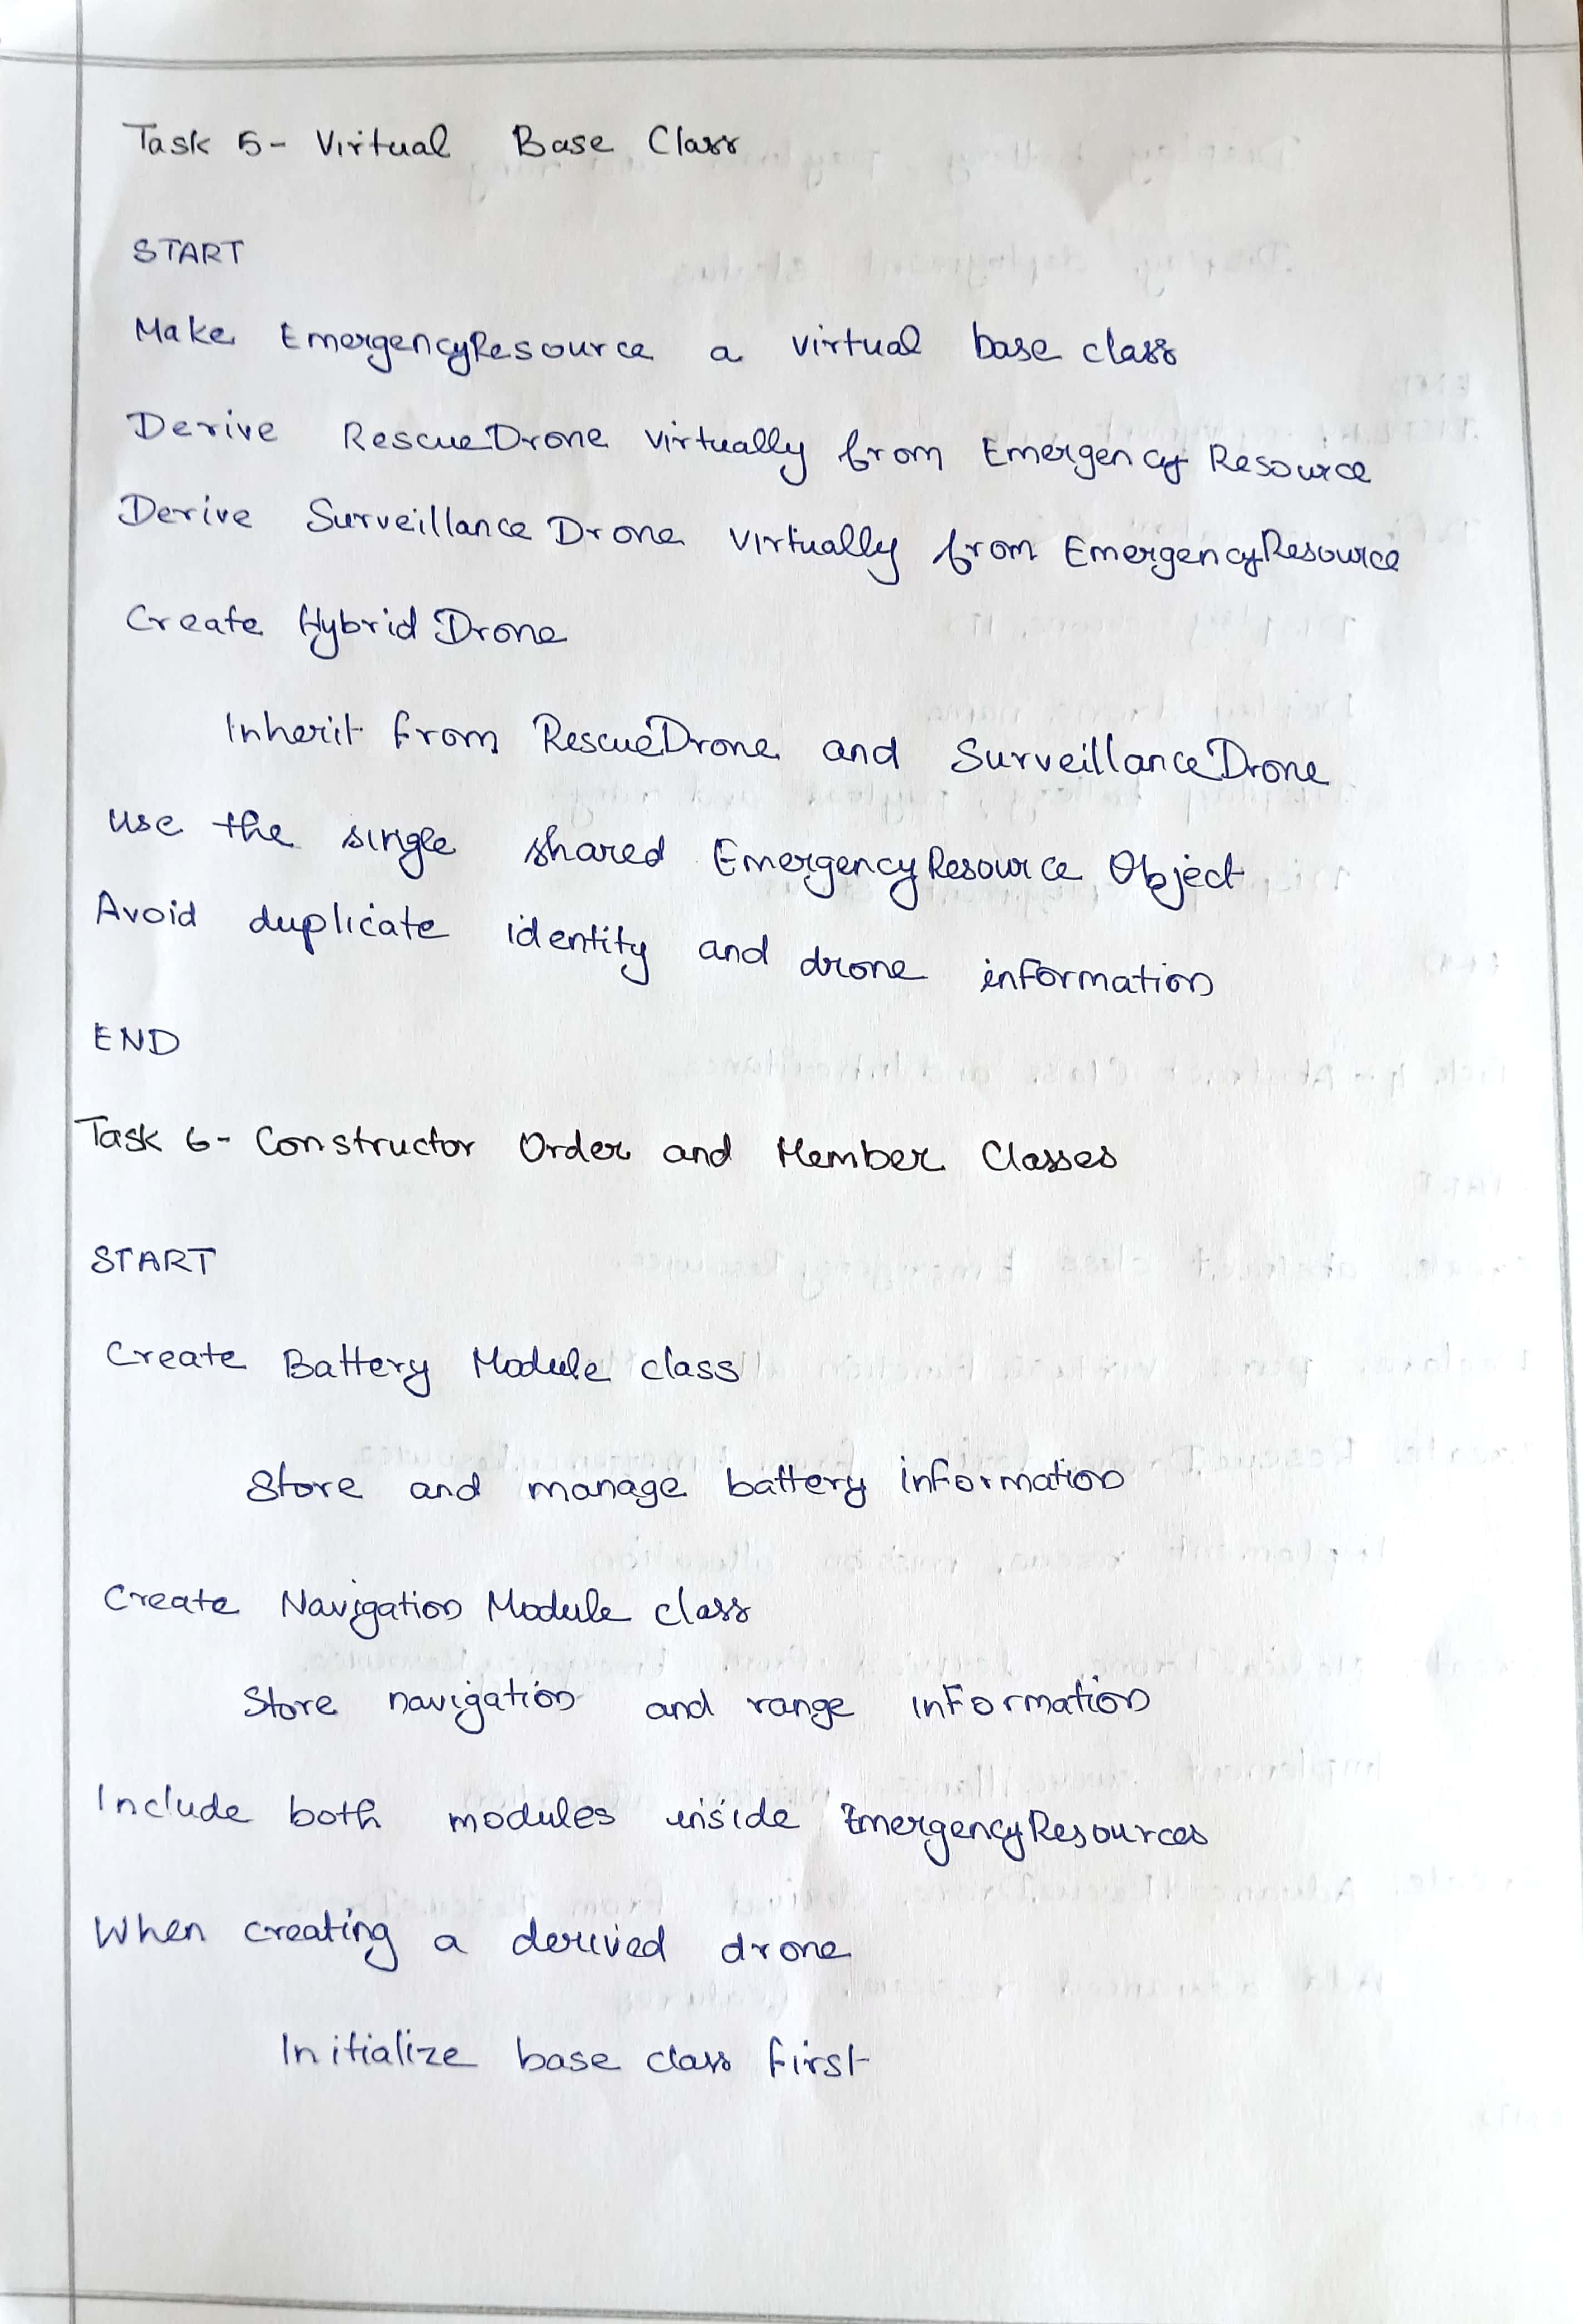 Task 5- Virtual Base Class
START
Make EmergencyResource a virtual base class
Derive RescueDrone virtually from Emergency Resource
Derive Surveillance Drone virtually from EmergencyResource
Create Hybrid Drone
Inherit from RescueDrone and SurveillanceDrone
Use the single shared EmergencyResource Object
Avoid duplicate identity and drone information
END
Task 6- Constructor Order and Member Classes
START
Create Battery Module class
Store and manage battery information
Create Navigation Module class
Store navigation and range information
Include both modules inside EmergencyResources
When creating a derived drone
Initialize base class first